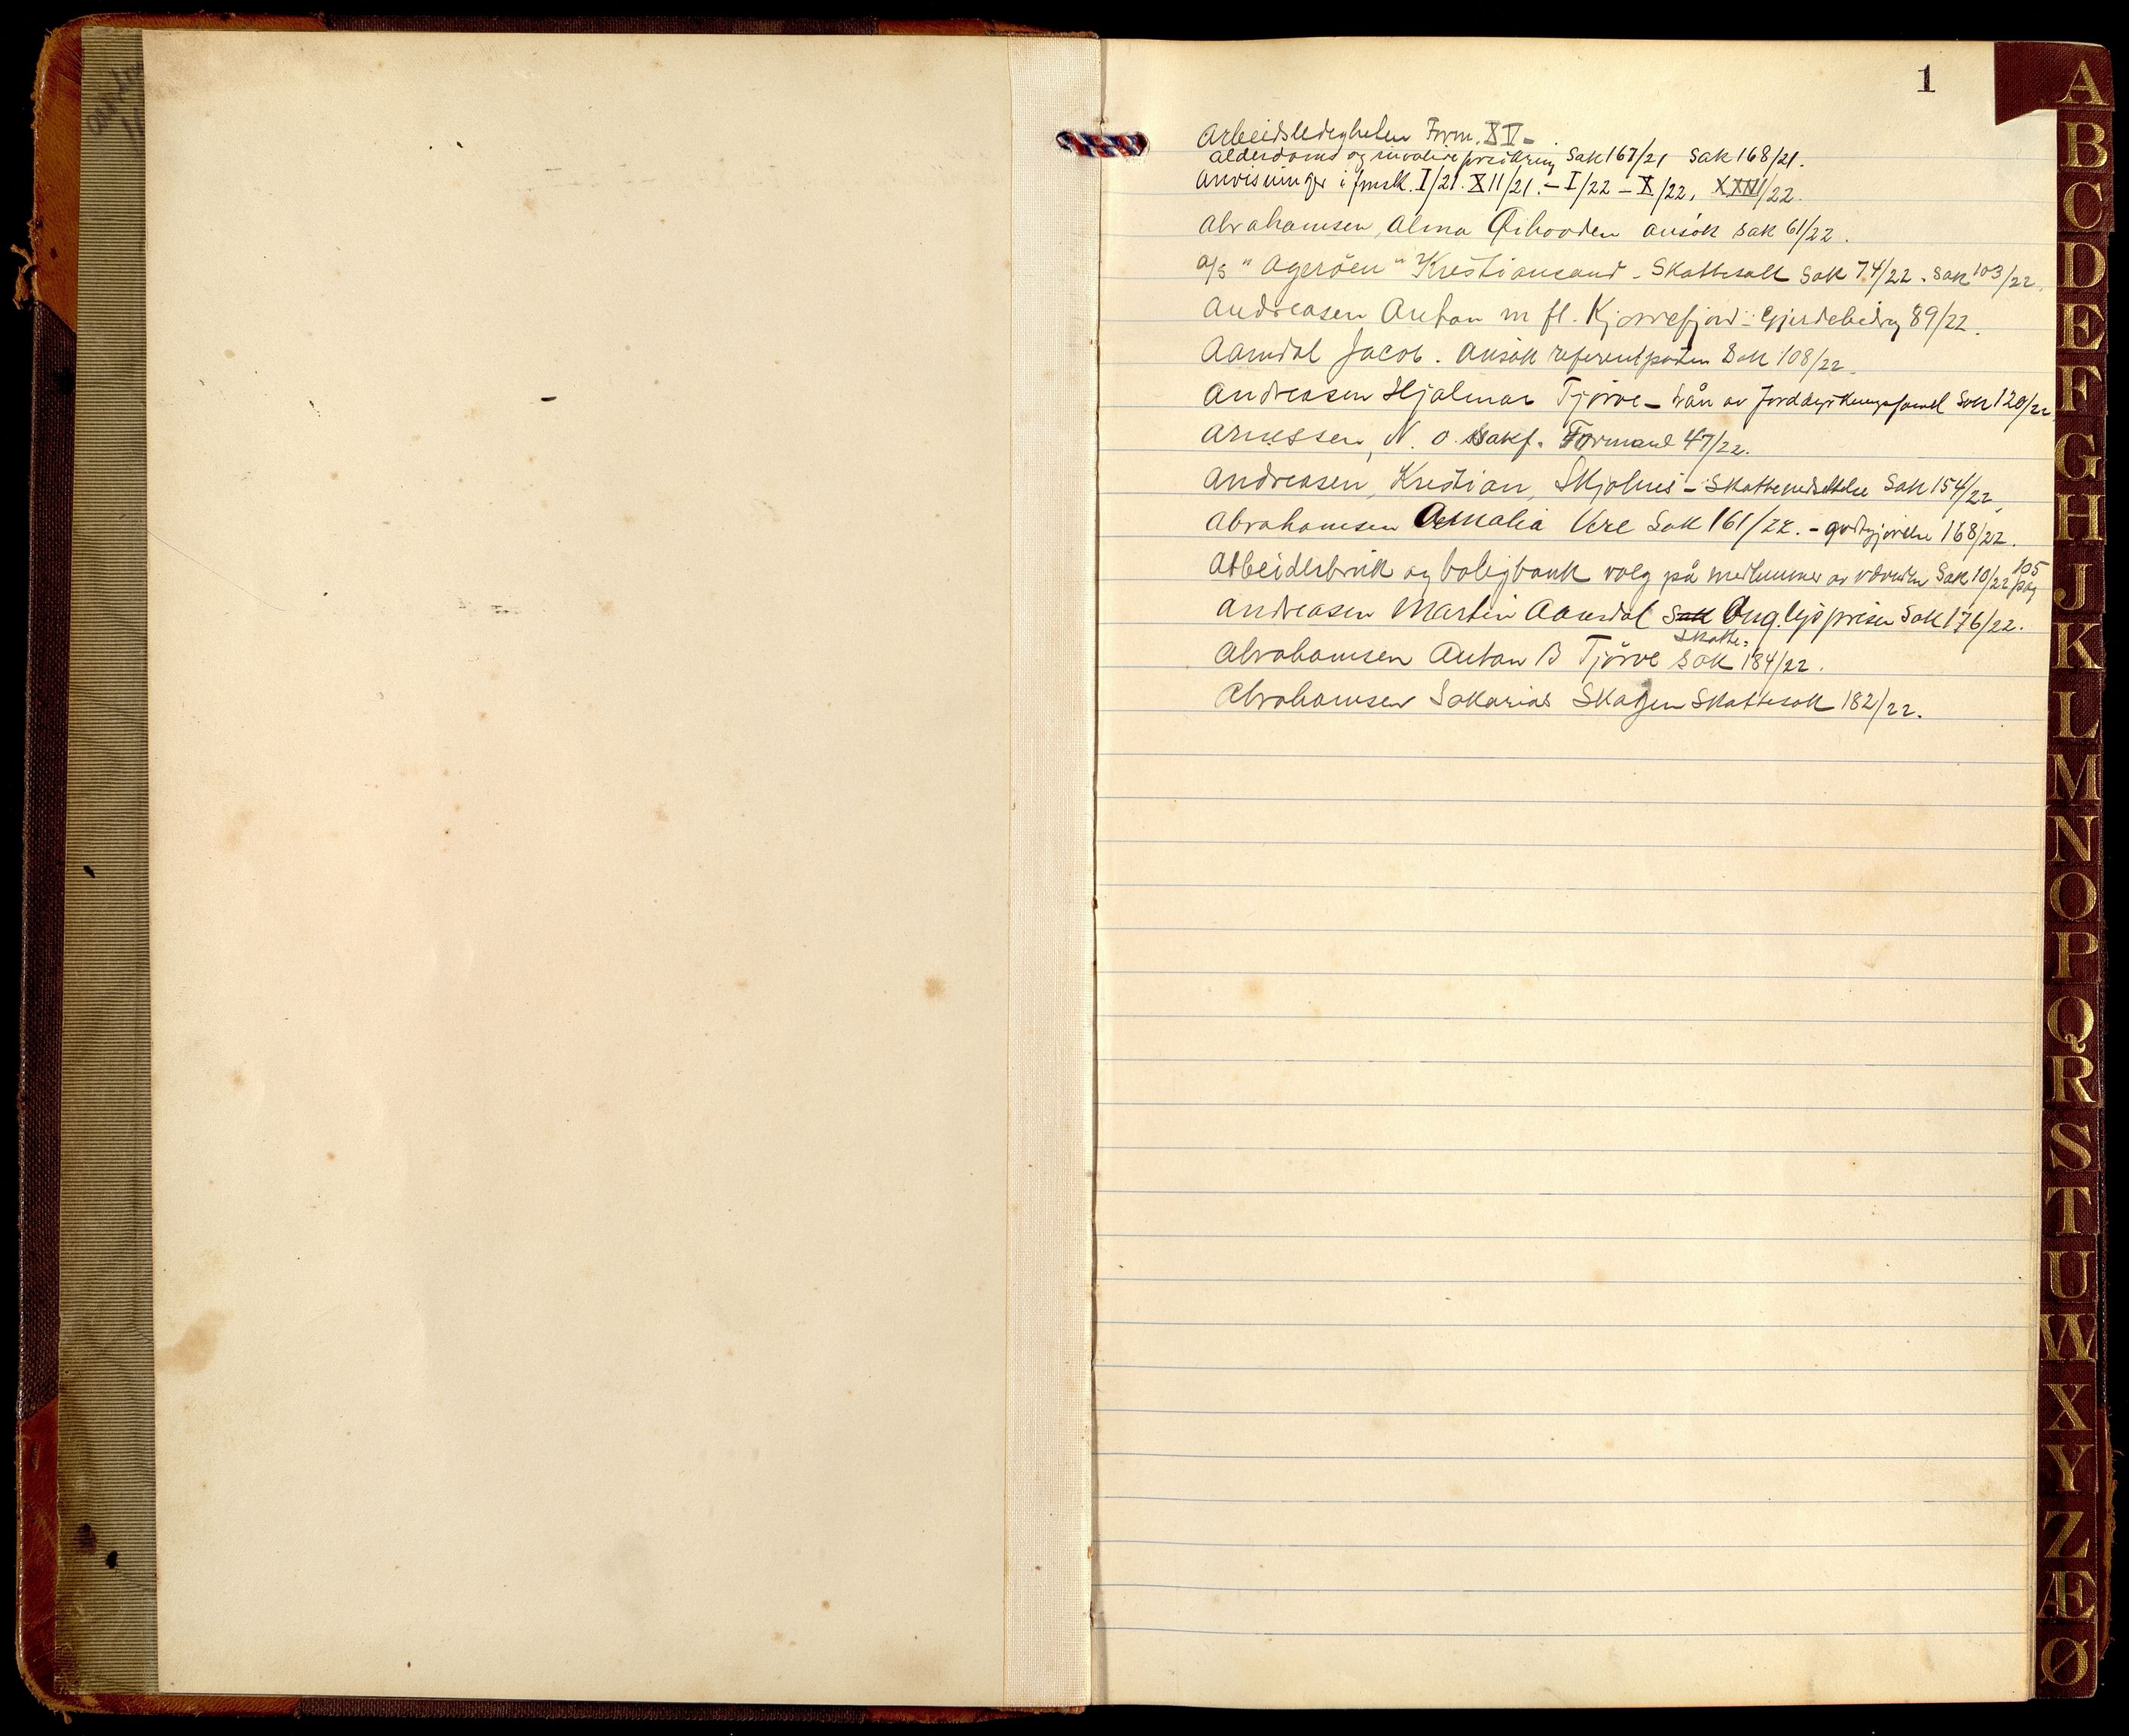 1
Arbeidsledigheten Form. XV -
Alderdoms og invalideforsikring Sak 167/21 Sak 168/21.
Anvisninger i fmsk. I/21. XII/21. - I/22 - X/22, /22.
Abrahamsen, Alma ansök sak 61/22.
A/S "Ageröen" Kristiansand - Skattesak Sak 74/22. Sak 103/22.
Andreasen Anton m fl. Kjørrefjord - Gjerdebidrag 89/22.
Aamdal Jacob. Ansök referentposten Sak 108/22.
Andreasen Hjalmar Tjörve - Lån av Jorddyrkningsfond Sak 120/22
Arnessen, N. O. Sakf. Formand 47/22.
Andreasen, Kristian, Skjolnes - Skattenedsettelse Sak 154/22,
Abrahamsen Amalia Vere Sak 161/22. - godtgjörelse 168/22.
Arbeiderbruk og boligbank valg på medlemmer av Sak 10/22 105 pag
Andreasen Martin Aamdal Sak Ang. lysprisen Sak 176/22.
Abrahamsen Anton B Tjörve Skatte- Sak 184/22.
Abrahamsen Sakarias Skagen Skattesak 182/22.
A
B
C
D
E
F
G
H
J
K
L
M
N
O
P
Q
R
S
T
U
W
X
Y
Z
Æ
Ø